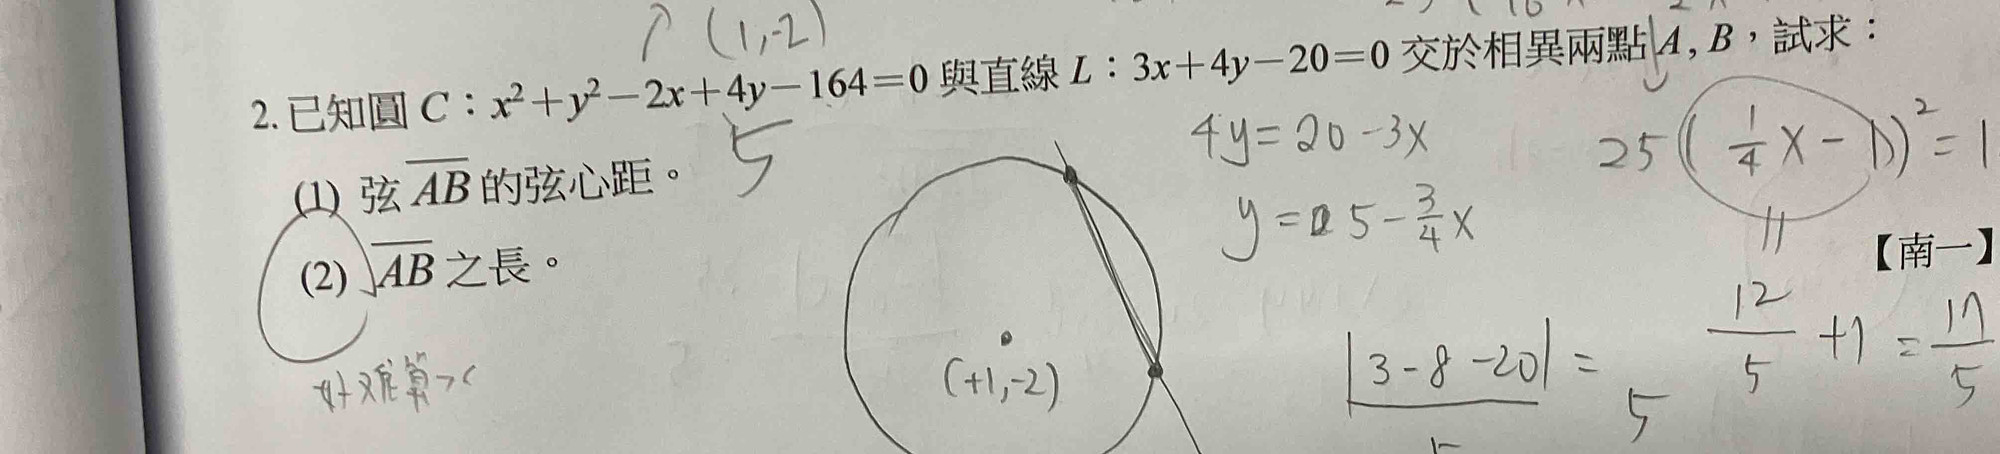 (1,-2)
2. 已知圓 C：x²+y²-2x+4y-164=0 與直線 L：3x+4y-20=0 交於相異兩點 A, B，試求：
(1) 弦 AB 的弦心距。
5
(2) AB 之長。
【南一】
好難算><
(+1,-2)
4y=20-3x
y=5-3/4x
|3-8-20|
=5
25(1/4x-1))²=1
12/5+1=17/5